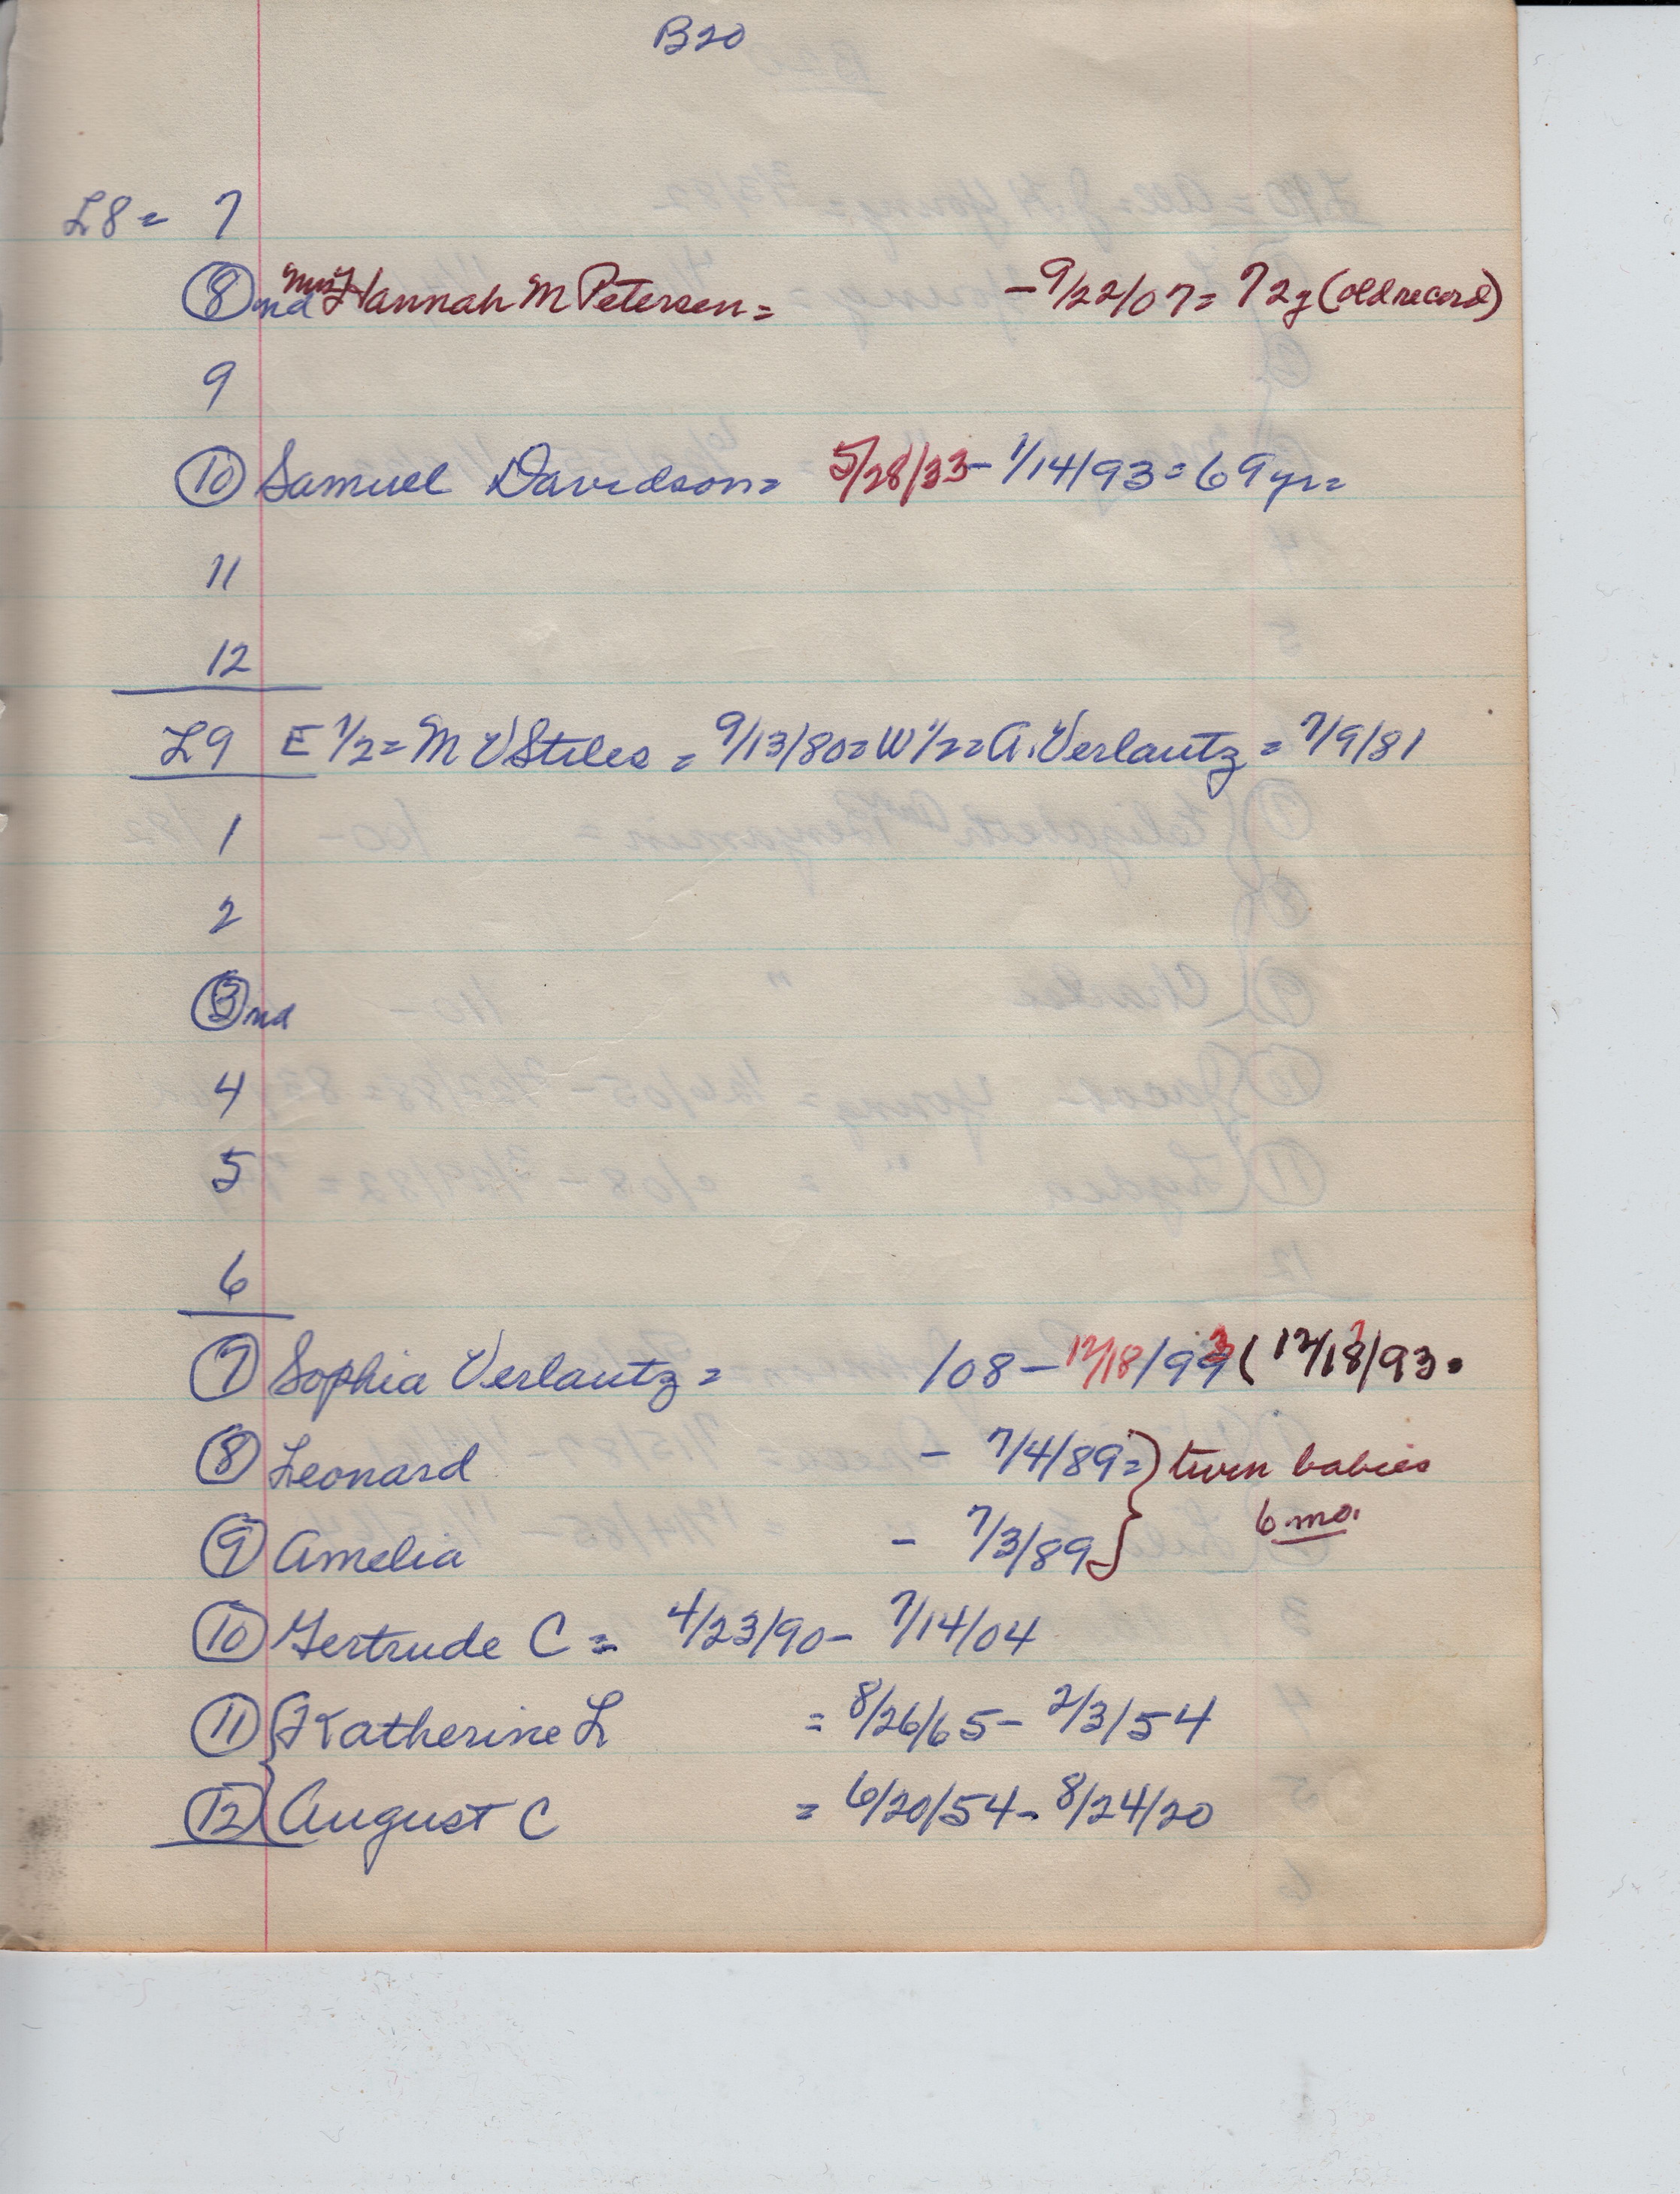 B20
L8 = 7
8 nd Mrs Hannah M Petersen = - 9/22/07 = 72y (old record)
9
10 Samuel Davidson = 5/28/33 - 1/14/93 = 69 yr =
11
12
L9 E 1/2 = M V Stiles = 9/13/80 = W 1/2 = A. Verlautz = 7/9/81
1
2
3 nd
4
5
6
7 Sophia Verlautz = /08 - 12/18/93 ( 12/18/93.
8 Leonard - 7/4/89 = } twin babies
9 Amelia - 7/3/89 } 6 mo.
10 Gertrude C = 4/23/90 - 7/14/04
11 { Katherine L = 8/26/65 - 2/3/54
12 { August C = 6/20/54 - 8/24/20